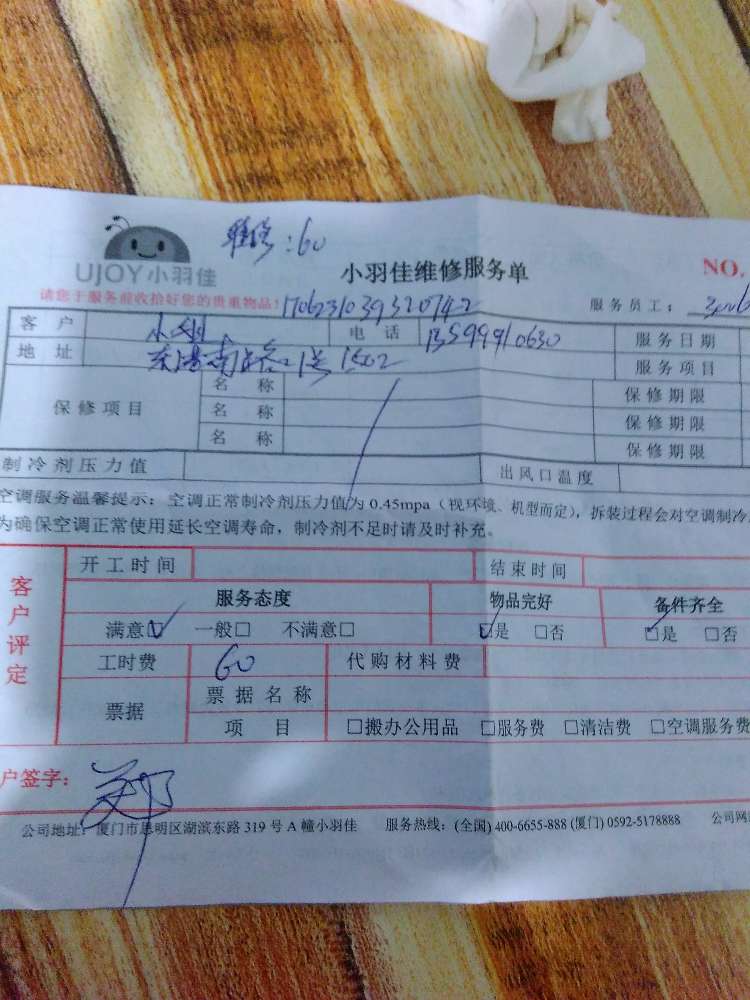 维修：60
UJOY小羽佳
小羽佳维修服务单
NO.
请您于服务前收拾好您的贵重物品！
服务员工：
客户 电话 服务日期
地址 南路 1502 服务项目
保修项目 名称 保修期限
名称 保修期限
名称 保修期限
制冷剂压力值 出风口温度
空调服务温馨提示：空调正常制冷剂压力值为 0.45mpa（视环境、机型而定），拆装过程会对空调制冷
为确保空调正常使用延长空调寿命，制冷剂不足时请及时补充。
客户评定
开工时间 结束时间
服务态度 物品完好 备件齐全
满意☑ 一般□ 不满意□ ☑是 □否 ☑是 □否
工时费 60 代购材料费
票据 票据名称
项目 □搬办公用品 □服务费 □清洁费 □空调服务费
户签字： 郑
公司地址：厦门市思明区湖滨东路 319 号 A 幢小羽佳 服务热线：(全国) 400-6655-888 (厦门) 0592-5178888 公司网